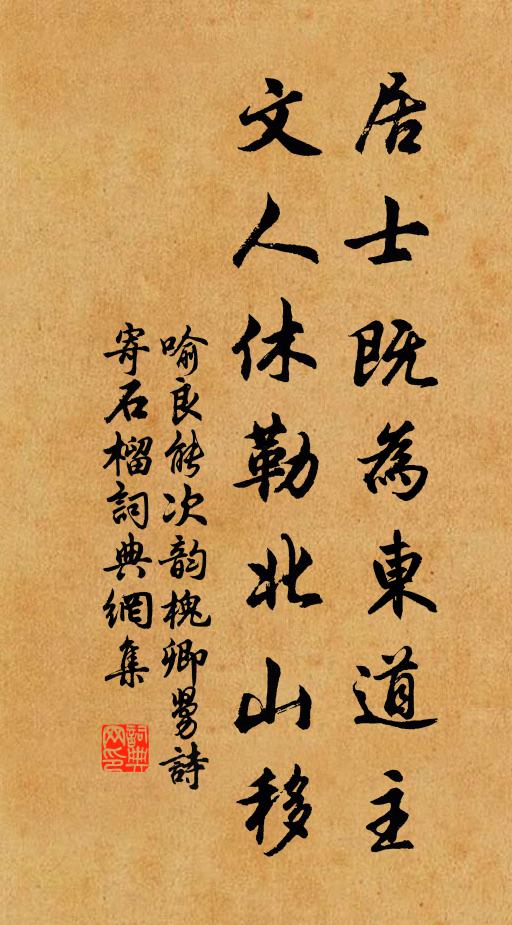 居士既為東道主
文人休勒北山移
喻良能次韵槐卿舅詩
寄石榴詞典網集
詞典網印